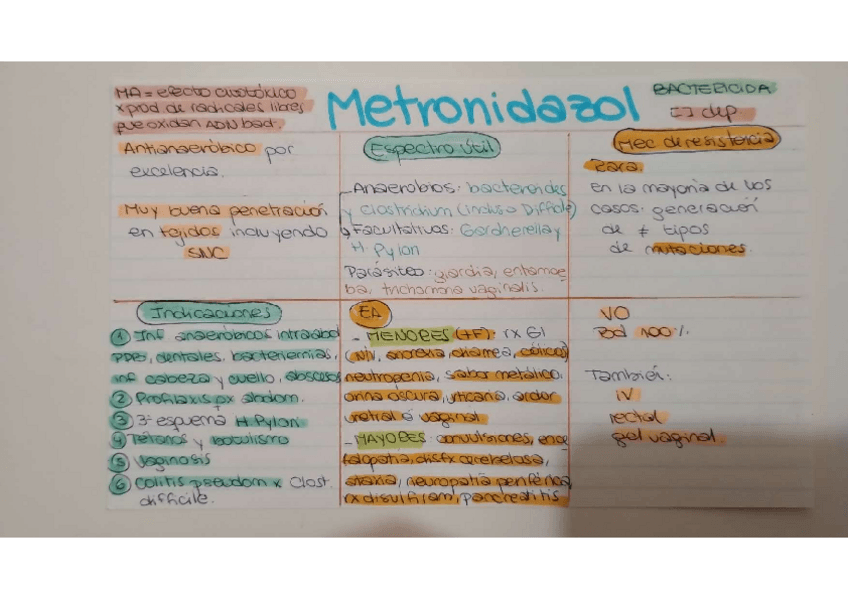 MA = efecto citotóxico
x prod de radicales libres
que oxidan ADN bact.
Metronidazol
BACTERICIDA
[ ] dep
Antianaeróbico por
excelencia.
Muy buena penetración
en tejidos incluyendo
SNC
Espectro útil
Anaerobios: bacteroides
y clostridium (incluso Difficile)
Facultativos: Gardnerella y
H Pylori
Parásitos: giardia, entamoe
ba, trichomona vaginalis.
Mec de resistencia
Rara.
en la mayoría de los
casos: generación
de ≠ tipos
de mutaciones.
Indicaciones
① Inf anaeróbicos intraabd
, dentales, bacteriemias,
inf cabeza y cuello, abscesos
② Profilaxis qx abdom.
③ 3° esquema H Pylori
④ Tétanos y botulismo
⑤ Vaginosis
⑥ Colitis pseudom x Clost.
difficile.
EA
- MENORES (+F): rx GI
(N/V, anorexia, diarrea, cólicos)
neutropenia, sabor metálico,
orina oscura, urticaria, ardor
uretral o vaginal
- MAYORES: convulsiones, ence
falopatía, disfx cerebelosa,
ataxia, neuropatía periférica,
rx disulfiram, pancreatitis
VO
Bd 100%.
También:
IV
rectal
gel vaginal.